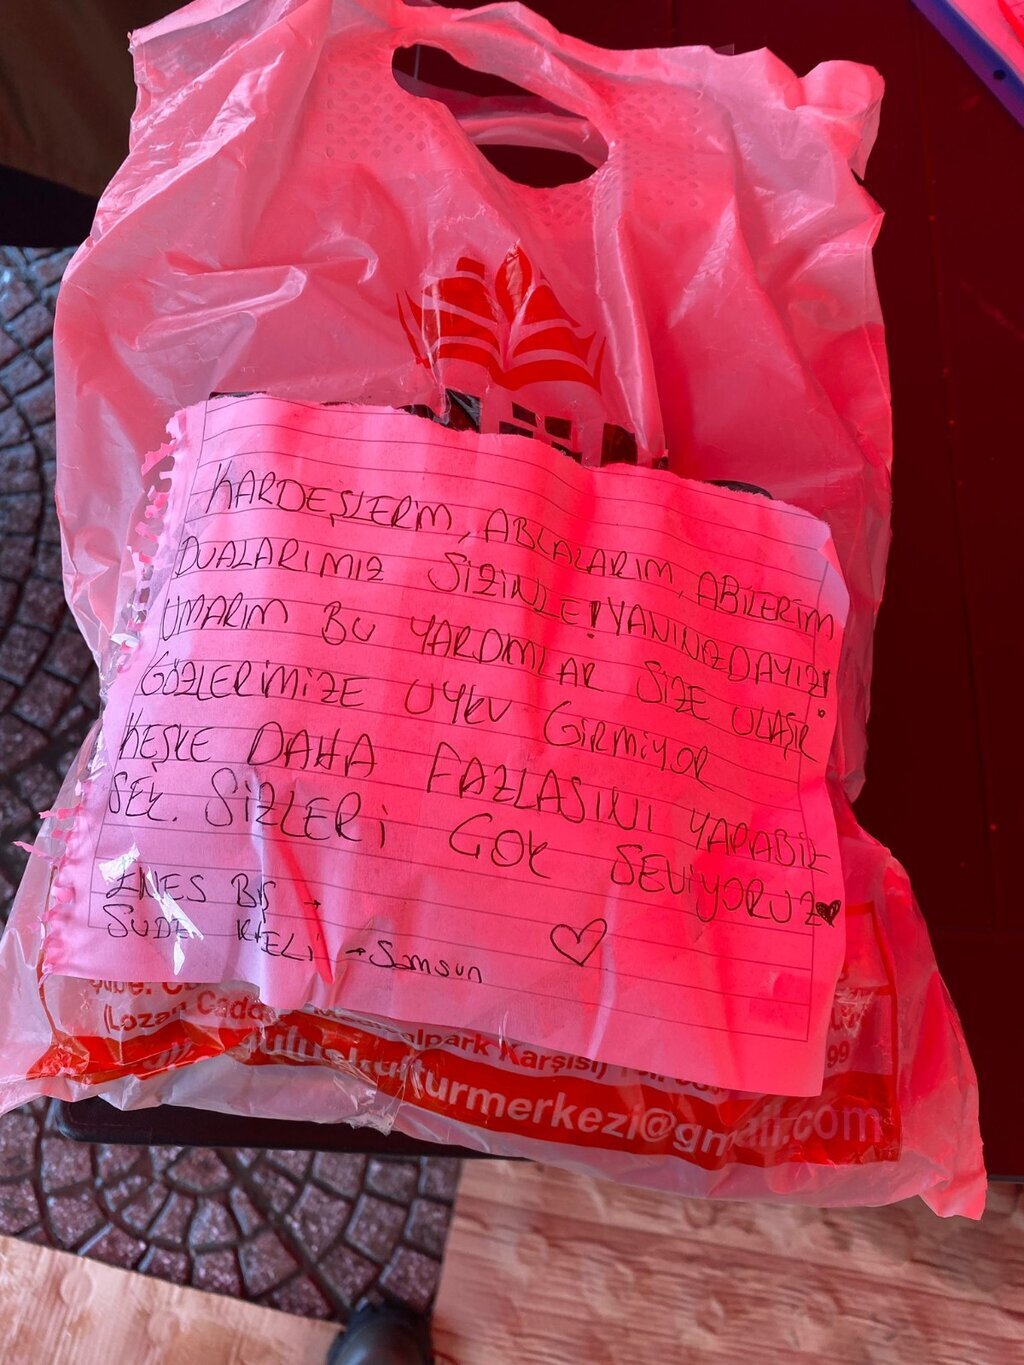 KARDEŞLERİM, ABLALARIM, ABİLERİM
DUALARIMIZ SİZİNLE! YANINIZDAYIZ!
UMARIM BU YARDIMLAR SİZE ULAŞIR
GÖZLERİMİZE UYKU GİRMİYOR
KEŞKE DAHA FAZLASINI YAPABİL
SEK. SİZLERİ ÇOK SEVİYORUZ
ENES BAŞ →
SUDE → Samsun
Karşısı)
kulturmerkezi@gmail.com